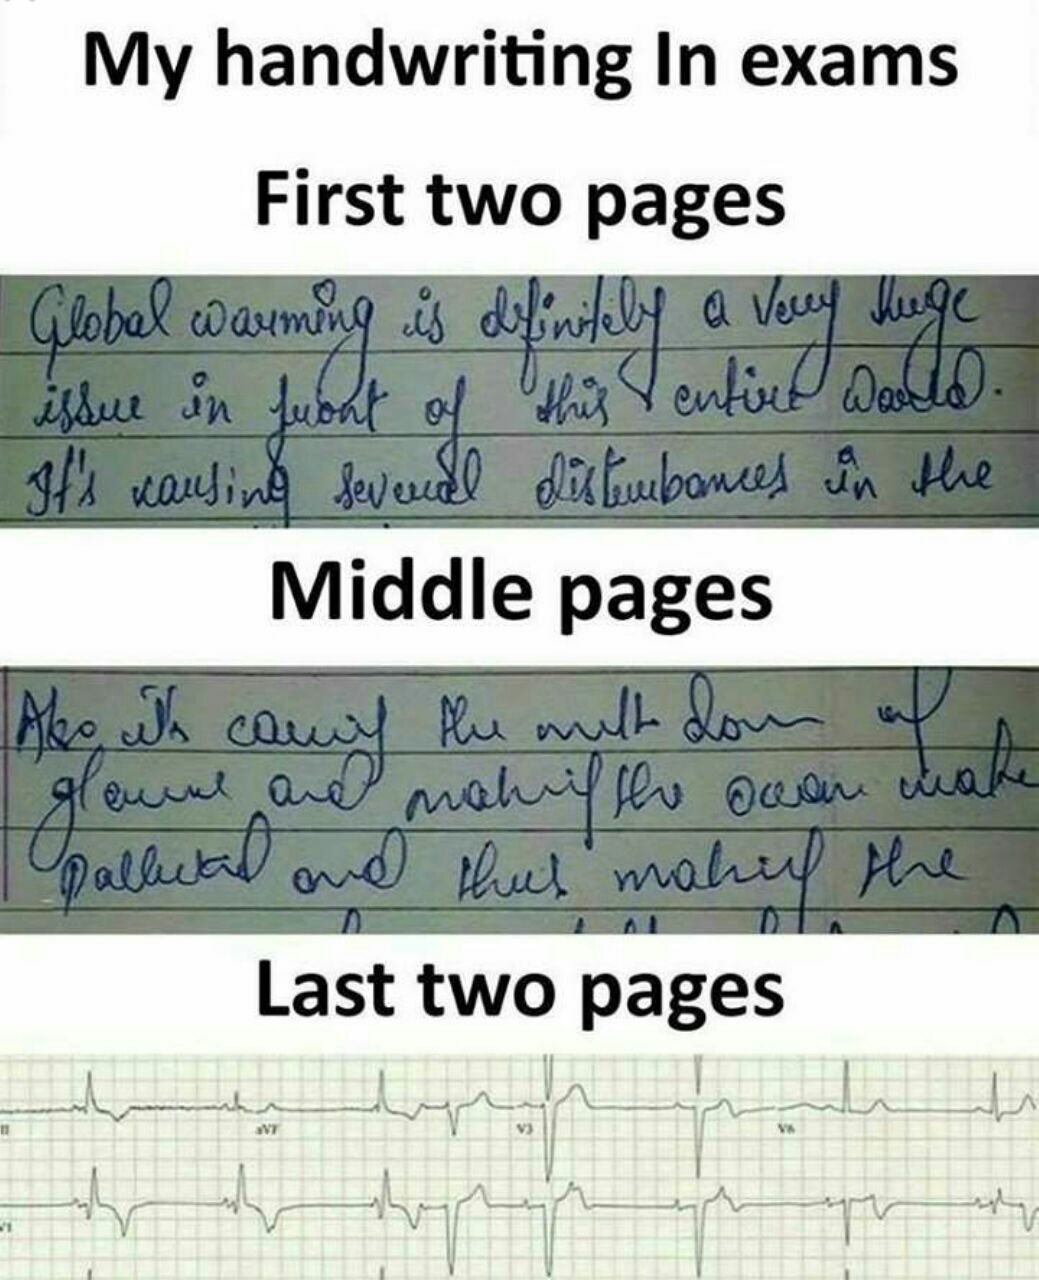 My handwriting In exams
First two pages
Global warming is definitely a very huge
issue in front of this entire World.
It's causing several disturbances in the
Middle pages
Also its causing the melt down of
and making the ocean
polluted and thus making the
Last two pages
II aVF V3 V6
V1